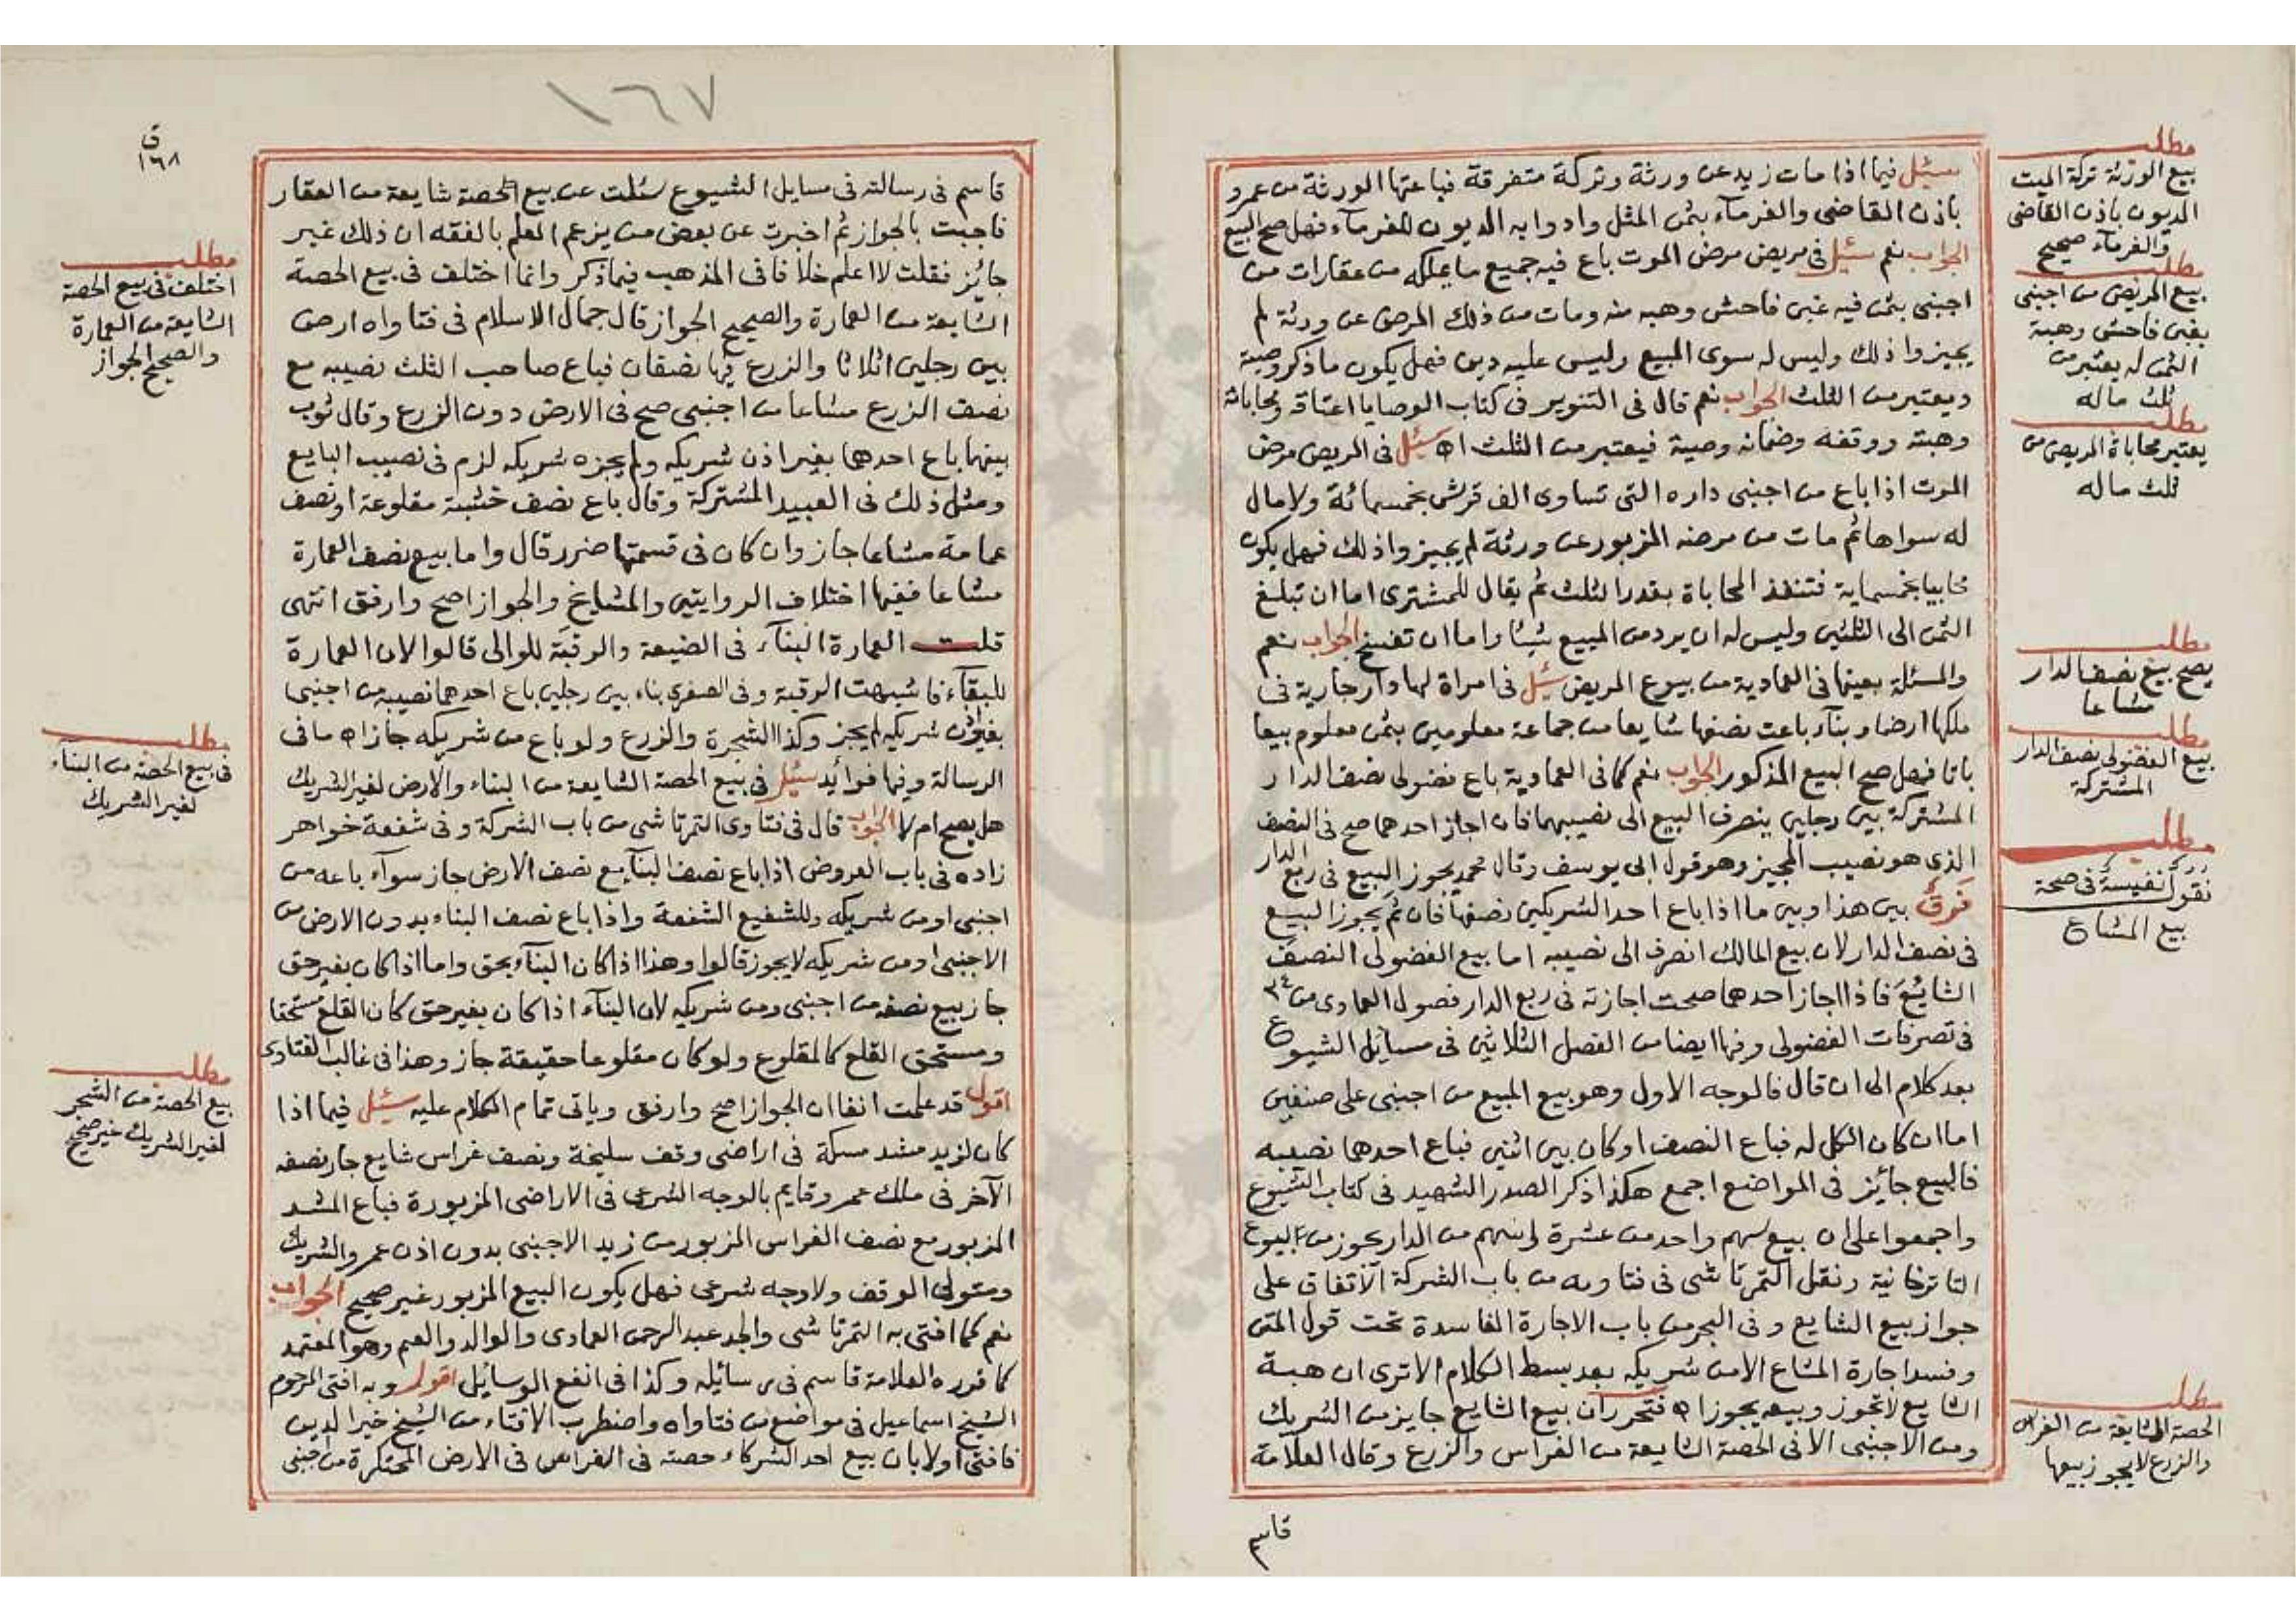 سئل فيما اذا مات زيد عن ورثة وتركة متفرقة فباعتها الورثة من عمرو
باذن القاضى والغرمآء بثمن المثل وادوا به الديون للغرمآء فهل صح البيع
الجواب نعم سئل فى مريض مرض الموت باع فيه جميع ما يملكه من عقارات من
اجنبى بثمن فيه غبن فاحش وهبه منه ومات من ذلك المرض عن ورثة لم
يجيزوا ذلك وليس له سوى المبيع وليس عليه دين فهل يكون ما ذكر وصية
ويعتبر من الثلث الجواب نعم قال فى التنوير فى كتاب الوصايا اعتاقه ومحاباته
وهبته ووقفه وضمانه وصية فيعتبر من الثلث اه سئل فى المريض مرض
الموت اذا باع من اجنبى داره التى تساوى الف قرش بخمسمائة ولا مال
له سواها ثم مات من مرضه المزبور عن ورثة لم يجيزوا ذلك فهل يكون
محابيا بخمسماية فتنفذ المحاباة بقدر الثلث ثم يقال للمشترى اما ان تبلغ
الثمن الى الثلثين وليس له ان يرد من المبيع شيئا واما ان تفسخ الجواب نعم
والمسئلة بعينها فى العمادية من بيوع المريض سئل فى امراة لها دار جارية فى
ملكها ارضا وبنآء باعت نصفها شايعا من جماعة معلومين بثمن معلوم بيعا
باتا فهل صح البيع المذكور الجواب نعم كما فى العمادية باع فضولى نصف الدار
المشتركة بين رجلين ينصرف البيع الى نصيبهما فان اجاز احدهما صح فى النصف
الذى هو نصيب المجيز وهو قول ابى يوسف وقال محمد يجوز البيع فى ربع الدار
فَرقٌ بين هذا وبين ما اذا باع احد الشريكين نصفها فان ثم يجوز البيع
فى نصف الدار لان بيع المالك انصرف الى نصيبه اما بيع الفضولى النصف
الشائع فاذا اجاز احدهما صحت اجازته فى ربع الدار فصول العمادى من ٢٤
فى تصرفات الفضولى وفيها ايضا من الفصل الثلاثين فى مسائل الشيوع
بعد كلام الى ان قال فالوجه الاول وهو بيع المبيع من اجنبى على صنفين
اما ان كان الكل له فباع النصف او كان بين اثنين فباع احدهما نصيبه
فالبيع جائز فى المواضع اجمع هكذا ذكر الصدر الشهيد فى كتاب الشيوع
واجمعوا على ان بيع سهم واحد من عشرة اسهم من الدار يجوز من البيوع
التاترخانية ونقل التمرتاشى فى فتاويه من باب الشركة الاتفاق على
جواز بيع الشايع وفى البحر من باب الاجارة الفاسدة تحت قول المتن
وفسد اجارة المشاع الا من شريكه بعد بسط الكلام الا ترى ان هبة
الشايع لا تجوز وبيعه يجوز اه فتحرر ان بيع الشايع جايز من الشريك
ومن الاجنبى الا فى الحصة الشايعة من الغراس والزرع وقال العلامة
قاسم
مطلب
بيع الورثة تركة الميت
المديون باذن القاضى
والغرمآء صحيح
مطلب
بيع المريض من اجنبى
بغبن فاحش وهبة
الثمن له يعتبر من
ثلث ماله
مطلب
يعتبر محاباة المريض من
ثلث ماله
مطلب
يصح بيع نصف الدار
مشاعا
مطلب
بيع الفضولى نصف الدار
المشتركة
مطلب
نقول نفيسة فى صحة
بيع المشاع
مطلب
الحصة الشايعة من الغراس
والزرع لا يجوز بيعها
١٦٧
ق
١٦٨
قاسم فى رسالته فى مسايل الشيوع سئلت عن بيع الحصة شايعة من العقار
فاجبت بالجواز ثم اخبرت عن بعض من يزعم العلم بالفقه ان ذلك غير
جائز فقلت لا اعلم خلافا فى المذهب فيما ذكر وانما اختلف فى بيع الحصة
الشايعة من العمارة والصحيح الجواز قال جمال الاسلام فى فتاواه ارض
بين رجلين اثلاثا والزرع فيها نصفان فباع صاحب الثلث نصيبه مع
نصف الزرع مشاعا من اجنبى صح فى الارض دون الزرع وقال ثوب
بينهما باع احدهما بغير اذن شريكه ولم يجزه شريكه لزم فى نصيب البايع
ومثل ذلك فى العبيد المشتركة وقال باع نصف خشبة مقلوعة او نصف
عمامة مشاعا جاز وان كان فى قسمتها ضرر قال واما بيع نصف العمارة
مشاعا ففيها اختلاف الروايتين والمشايخ والجواز اصح وارفق انتهى
قلت العمارة البنآء فى الضيعة والرقبة للوالى قالوا لان العمارة
للبقآء فاشبهت الرقبة وفى الصغرى بناء بين رجلين باع احدهما نصيبه من اجنبى
بغير اذن شريكه لم يجز وكذا الشجرة والزرع ولو باع من شريكه جاز اه ما فى
الرسالة وفيها فوائد سئل فى بيع الحصة الشايعة من البناء والارض لغير الشريك
هل يصح ام لا الجواب قال فى فتاوى التمرتاشى من باب الشركة وفى شفعة خواهر
زاده فى باب العروض اذا باع نصف البنآ مع نصف الارض جاز سوآء باعه من
اجنبى او من شريكه وللشفيع الشفعة واذا باع نصف البناء بدون الارض من
الاجنبى او من شريكه لا يجوز قالوا وهذا اذا كان البنآء بحق واما اذا كان بغير حق
جاز بيع نصفه من اجنبى ومن شريكه لان البنآء اذا كان بغير حق كان القلع مستحقا
ومستحق القلع كالمقلوع ولو كان مقلوعا حقيقة جاز وهذا فى غالب الفتاوى
اقول قد علمت انفا ان الجواز اصح وارفق وياتى تمام الكلام عليه سئل فيما اذا
كان لزيد مشد مسكة فى اراضى وقف سليخة ونصف غراس شايع جار نصفه
الآخر فى ملك عمرو قايم بالوجه الشرعى فى الاراضى المزبورة فباع المشد
المزبور مع نصف الغراس المزبور من زيد الاجنبى بدون اذن عمرو الشريك
ومتولى الوقف ولا وجه شرعى فهل يكون البيع المزبور غير صحيح الجواب
نعم كما افتى به التمرتاشى والجد عبد الرحمن العمادى والوالد والعم وهو المعتمد
كما قرره العلامة قاسم فى رسائله وكذا فى انفع الوسايل اقول وبه افتى المرحوم
الشيخ اسماعيل فى مواضع من فتاواه واضطرب الافتاء من الشيخ خير الدين
فافتى اولا بان بيع احد الشركاء حصته فى الغراس فى الارض المحتكرة من اجنبى
مطلب
اختلف فى بيع الحصة
الشايعة من العمارة
والصحيح الجواز
مطلب
فى بيع الحصة من البنآء
لغير الشريك
مطلب
بيع الحصة من الشجر
لغير الشريك غير صحيح